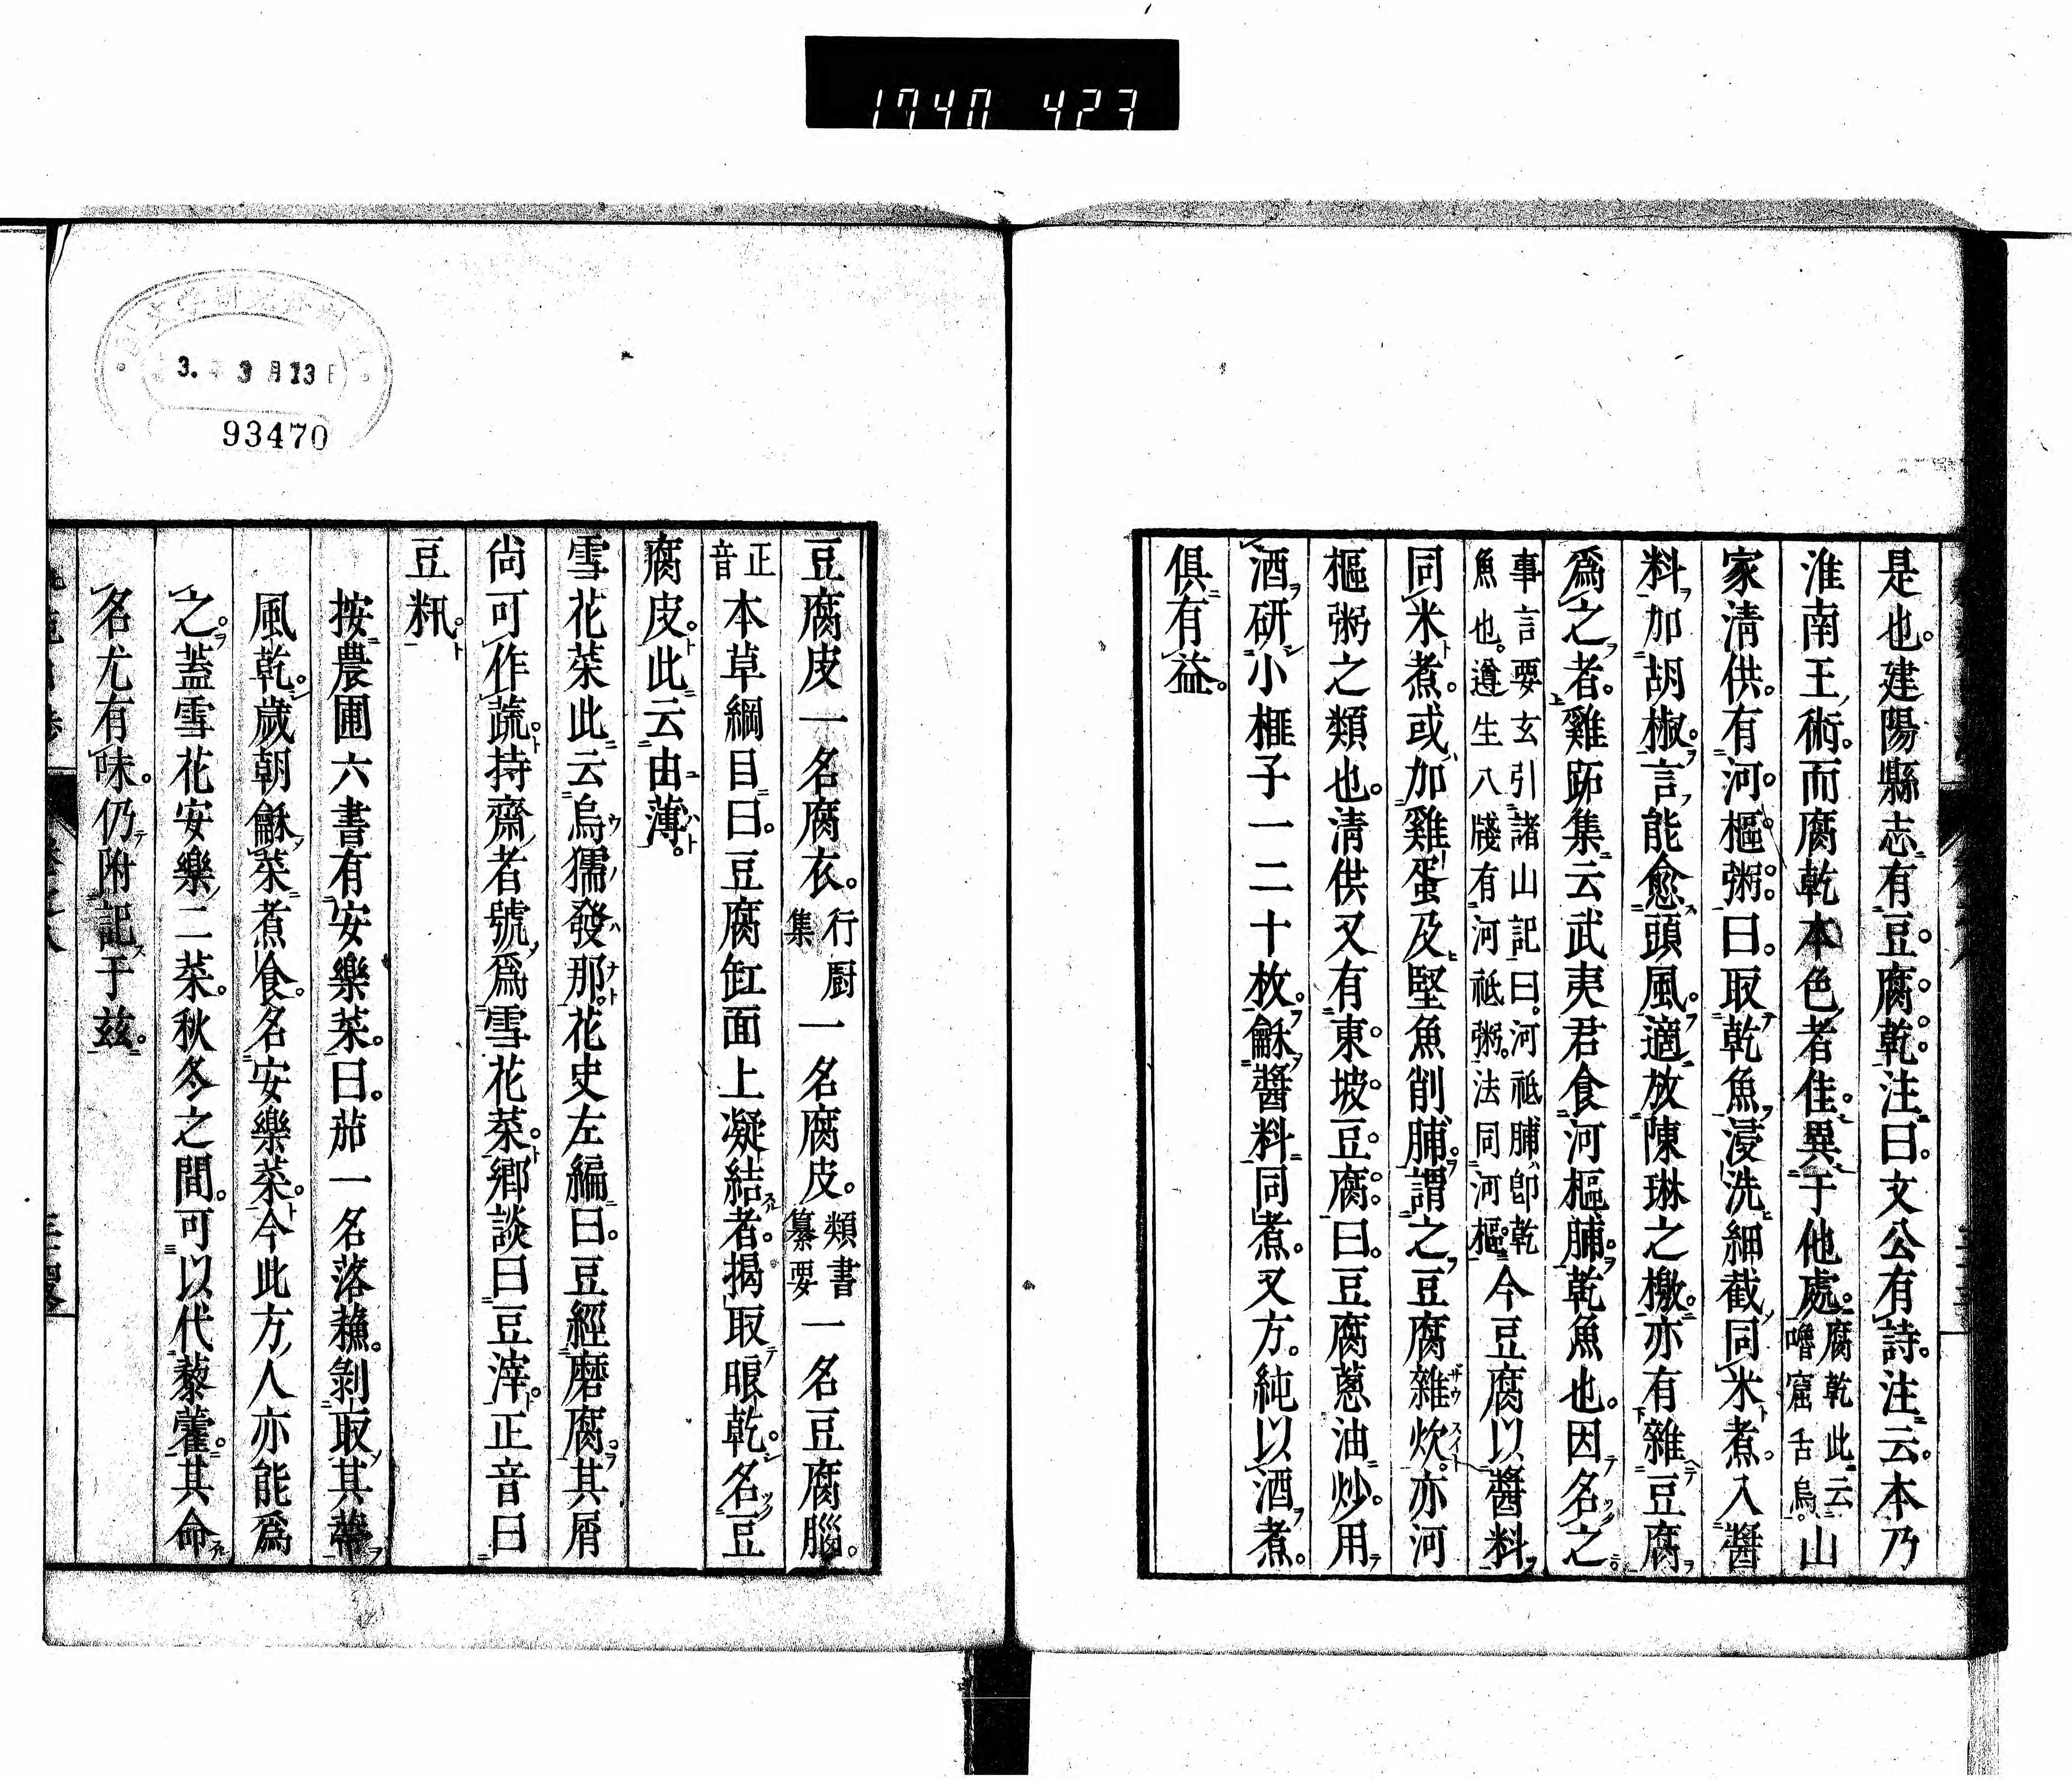 1740 423
是也。建陽縣志有豆腐乾。注曰。文公有詩。注云。本乃
淮南王術。而腐乾本色者佳。異于他處。腐乾此云嚕窟舌烏。山
家清供。有河樞粥。曰。取乾魚浸洗細截。同米煮。入醬
料加胡椒。言能愈頭風。適放陳琳之檄。亦有雜豆腐
爲之者。雞跖集云武夷君食河樞脯。乾魚也。因名之。
事言要玄引諸山記曰。河祗脯卽乾魚也。遵生八牋有河祗粥。法同河樞。今豆腐以醬料
同米煮。或加雞蛋及堅魚削脯。謂之豆腐雜炊。亦河
樞粥之類也。清供又有東坡豆腐。曰。豆腐蔥油炒。用
酒研小榧子一二十枚。龢醬料同煮。又方。純以酒煮。
俱有益。
豆腐皮一名腐衣。行厨集一名腐皮。類書纂要一名豆腐腦。
正音本草綱目曰。豆腐缸面上凝結者。揭取晾乾。名豆
腐皮。此云由薄。
雪花菜此云烏獳發那。花史左編曰。豆經磨腐。其屑
尚可作蔬。持齋者號爲雪花菜。鄉談曰豆滓。正音曰
豆籸。
按農圃六書有安樂菜。曰。茄一名落蘇。剝取其蒂
風乾。歲朝龢菜煮食。名安樂菜。今此方人亦能爲
之。蓋雪花安樂二菜。秋冬之間。可以代藜藿。其命
名尤有味。仍附記于茲。
3. 3月13日
93470